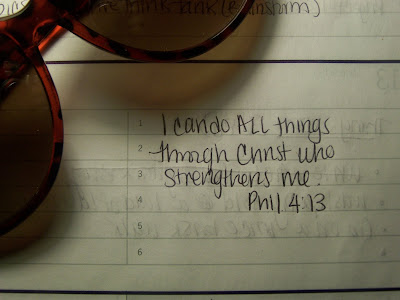 think tank (@ainsham)
1 I can do ALL things
2 through Christ who
3 strengthens me.
Phil. 4:13
4
5
6